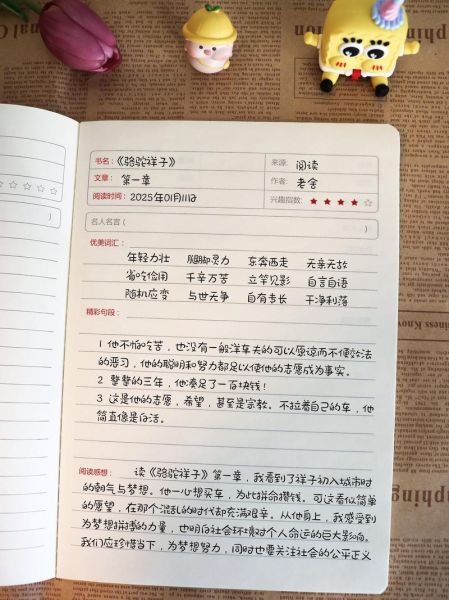 书名：《骆驼祥子》 来源：阅读
文章：第一章 作者：老舍
阅读时间：2025年01月11日 兴趣指数：★★★★☆
名人名言（ ）
优美词汇：
年轻力壮 腿脚灵力 东奔西走 无亲无故
省吃俭用 千辛万苦 立竿见影 自言自语
随机应变 与世无争 自有专长 干净利落
精彩句段：
1 他不怕吃苦，也没有一般洋车夫的可以原谅而不便效法
的恶习，他的聪明和努力都足以使他的志愿成为事实。
2 整整的三年，他凑足了一百块钱！
3 这是他的志愿，希望，甚至是宗教。不拉着自己的车，他
简直像是白活。
阅读感想：读《骆驼祥子》第一章，我看到了祥子初入城市时
的朝气与梦想。他一心想买车，为此拼命攒钱。可这看似简单
的愿望，在那个混乱的时代却充满艰辛。从他身上，我感受到
为梦想拼搏的力量，也明白社会环境对个人命运的巨大影响。
我们应珍惜当下，为梦想努力，同时也要关注社会的公平正义